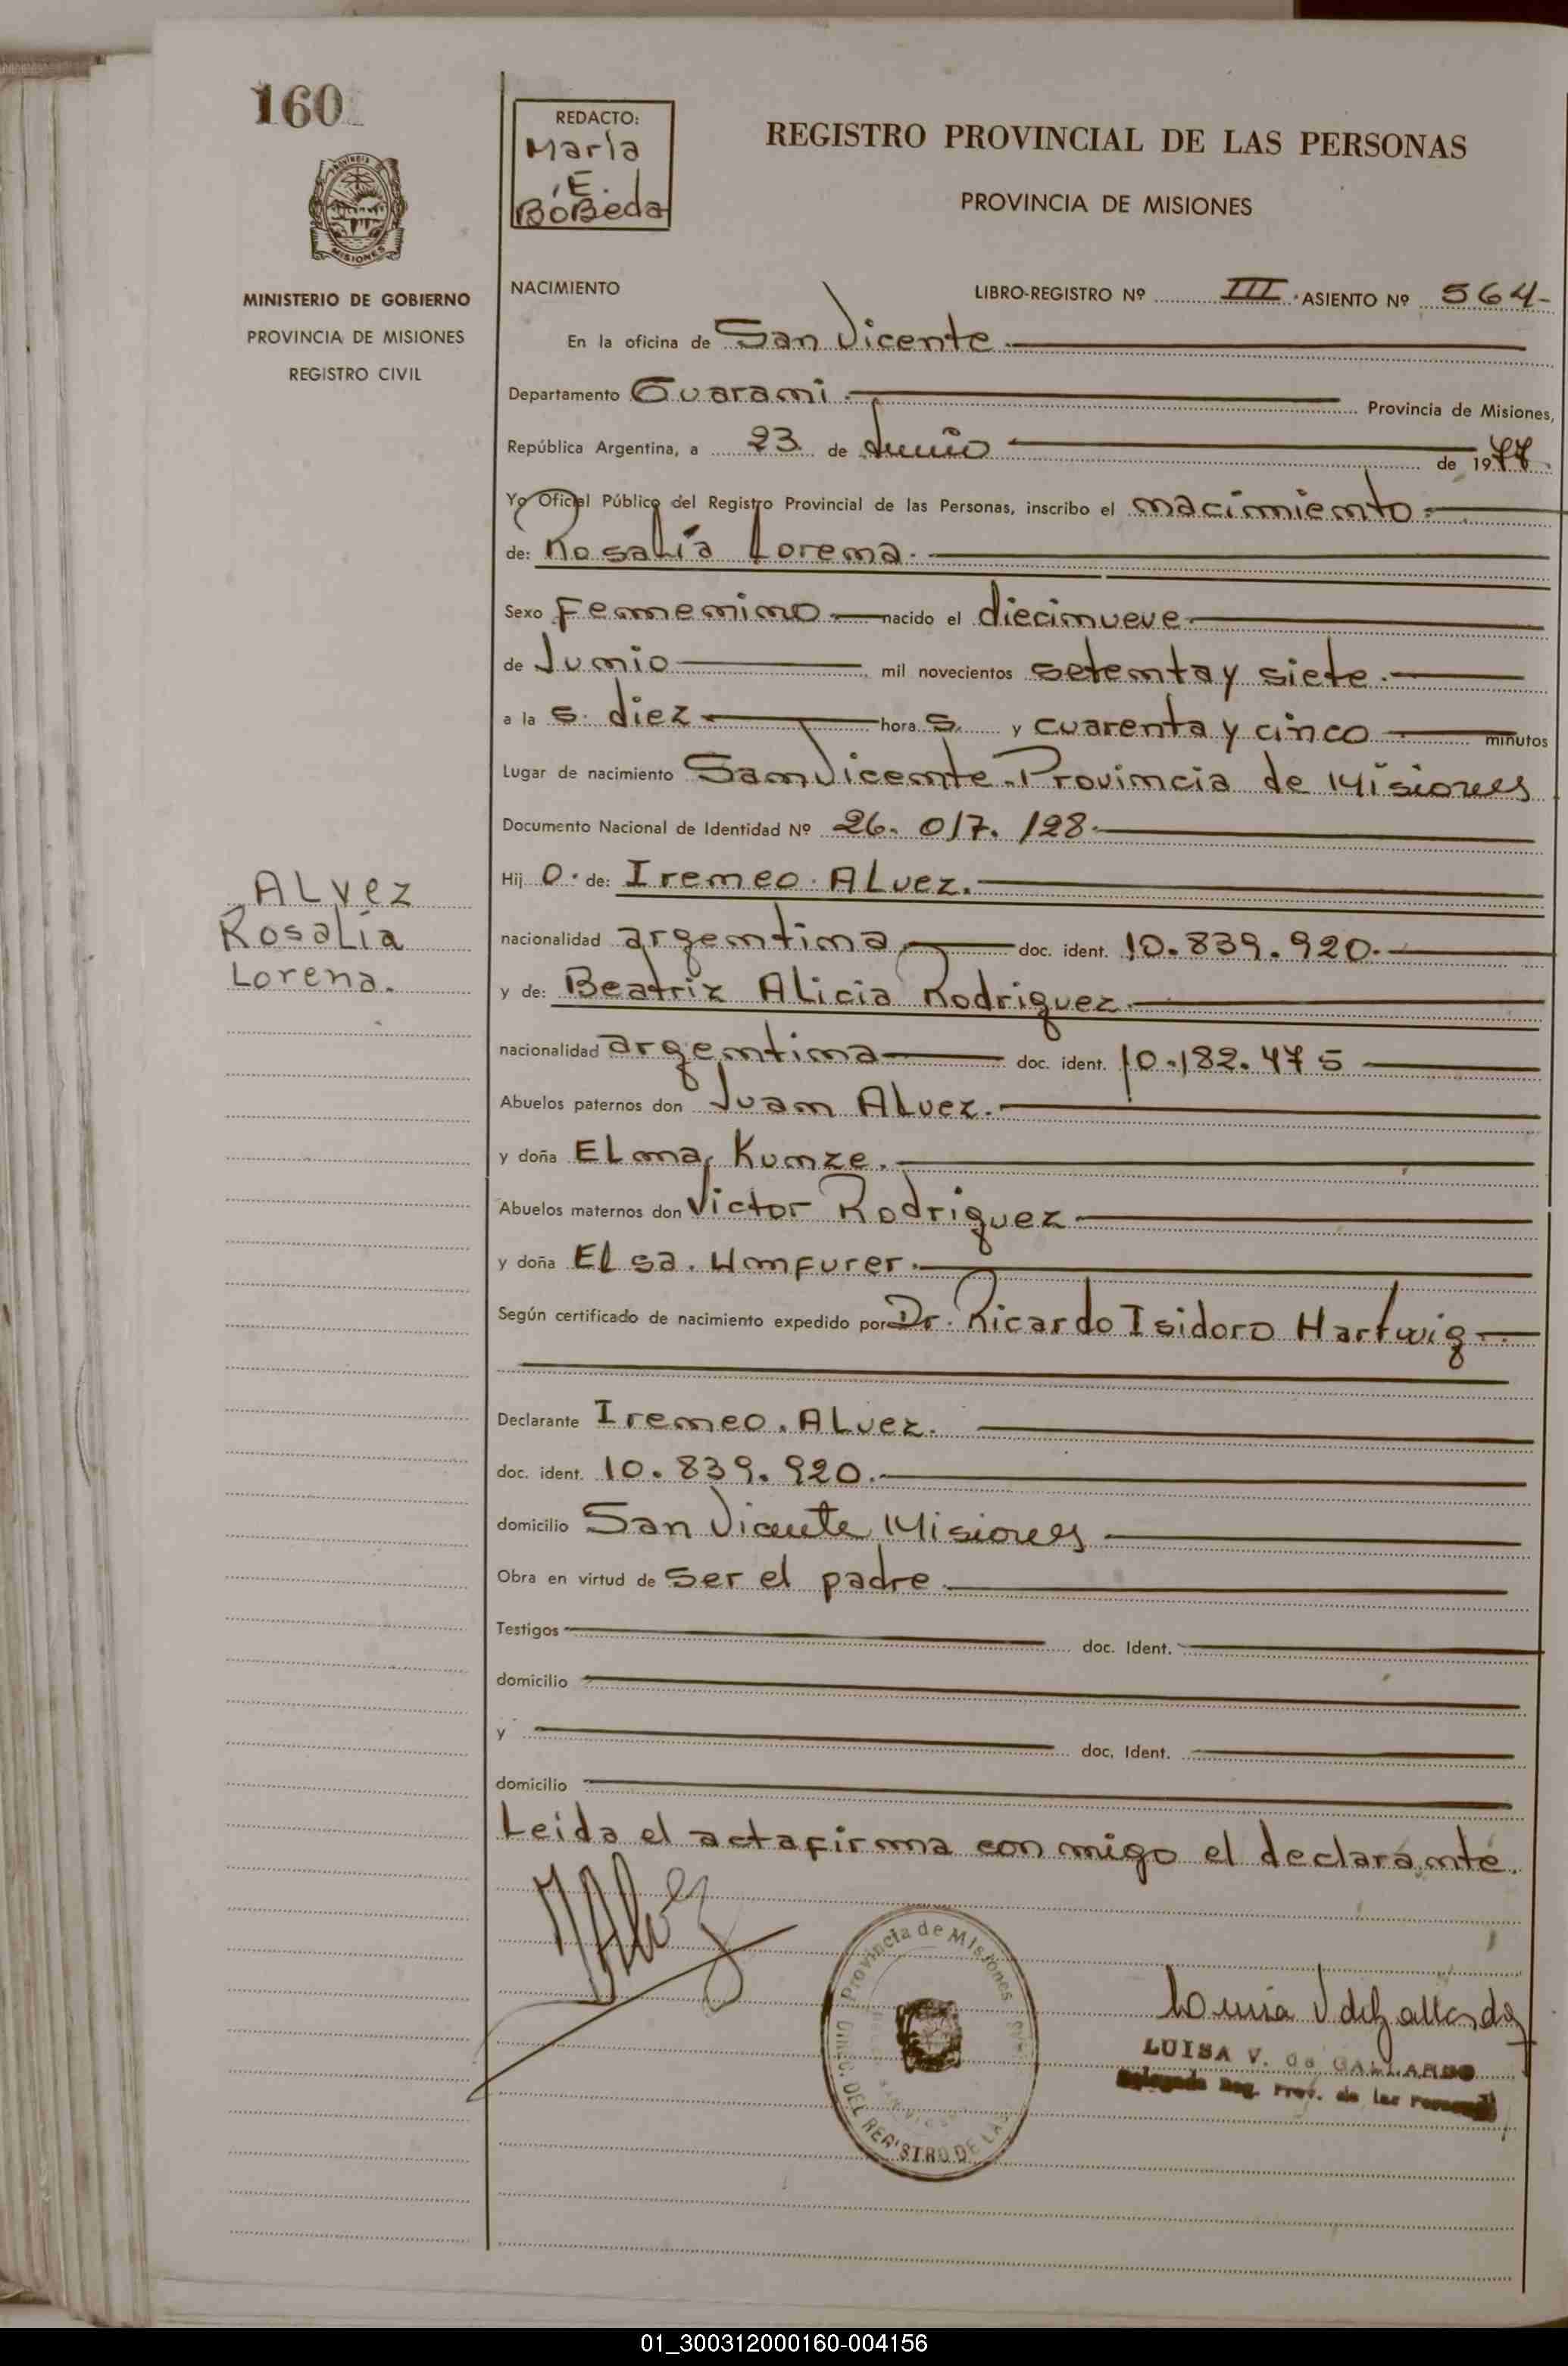 160
MINISTERIO DE GOBIERNO
PROVINCIA DE MISIONES
REGISTRO CIVIL
REDACTO:
María
E.
BóBeda
REGISTRO PROVINCIAL DE LAS PERSONAS
PROVINCIA DE MISIONES
NACIMIENTO LIBRO-REGISTRO Nº III. ASIENTO Nº 564-
En la oficina de San Vicente
Departamento Guaraní Provincia de Misiones,
República Argentina, a 23 de Junio de 1977
Yo Oficial Público del Registro Provincial de las Personas, inscribo el nacimiento
de: Rosalía Lorena.
Sexo Femenino nacido el diecinueve
de Junio mil novecientos setenta y siete.
a la s. diez hora s. y cuarenta y cinco minutos
Lugar de nacimiento San Vicente. Provincia de Misiones
Documento Nacional de Identidad Nº 26. 017. 128.
Hij o. de: Ireneo. ALvez.
nacionalidad argentina doc. ident. 10.839.920.
y de: Beatriz ALicia Rodriguez
nacionalidad argentina doc. ident. 10.182.475
Abuelos paternos don Juan ALvez.
y doña ELna, Kunze.
Abuelos maternos don Victor Rodriguez
y doña Elsa. Umfurer.
Según certificado de nacimiento expedido por Dr. Ricardo Isidoro Hartwig
Declarante Ireneo. ALvez.
doc. ident. 10. 839. 920.
domicilio San Vicente Misiones
Obra en virtud de ser el padre
Testigos doc. Ident.
domicilio
y doc. Ident.
domicilio
Leida el acta firma con migo el declarante.
ALvez
RosaLía
Lorena.
JAlvez
Provincia de Misiones
DIREC. DEL REGISTRO DE LAS
Luisa V de Gallardo
LUISA V. de GALLARDO
Delegada Reg. Prov. de las Personas
01_300312000160-004156